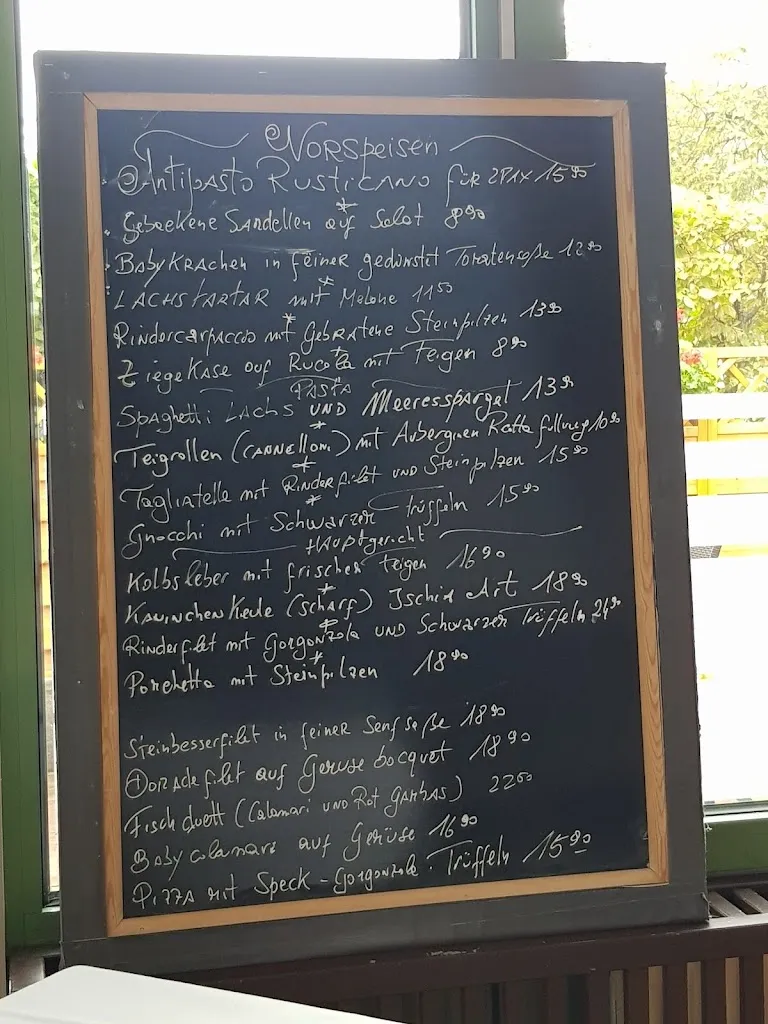 Vorspeisen
Antipasto Rusticano für 2PAX 15 90
Gebackene Sardellen auf Salat 8 90
Baby Krachen in feiner gedünstet Tomatensoße 12 90
LACHSTARTAR mit Melone 11 50
Rindercarpaccio mit Gebratene Steinpilzen 13 90
Ziegekäse auf Rucola mit Feigen 8 90
PASTA
Spaghetti Lachs UND Meeresspargel 13 90
Teigrollen (CANNELLONi) mit Auberginen Ricotta füllung 10 90
Tagliatelle mit Rinderfilet und Steinpilzen 15 90
Gnocchi mit Schwarzer Trüffeln 15 90
Hauptgericht
Kalbsleber mit frischer Feigen 16 90
Kaninchen Keule (scharf) Ischia Art 18 90
Rinderfilet mit Gorgonzola und Schwarzer Trüffeln 24 90
Porchetta mit Steinpilzen 18 90
Steinbesserfilet in feiner Senf soße 18 90
Doradefilet auf Gemüse bocquet 18 90
Fisch duett (Calamari und Rot Gambas) 22 00
Baby calamari auf Gemüse 16 90
Pizza mit Speck - Gorgonzola - Trüffeln 15 90